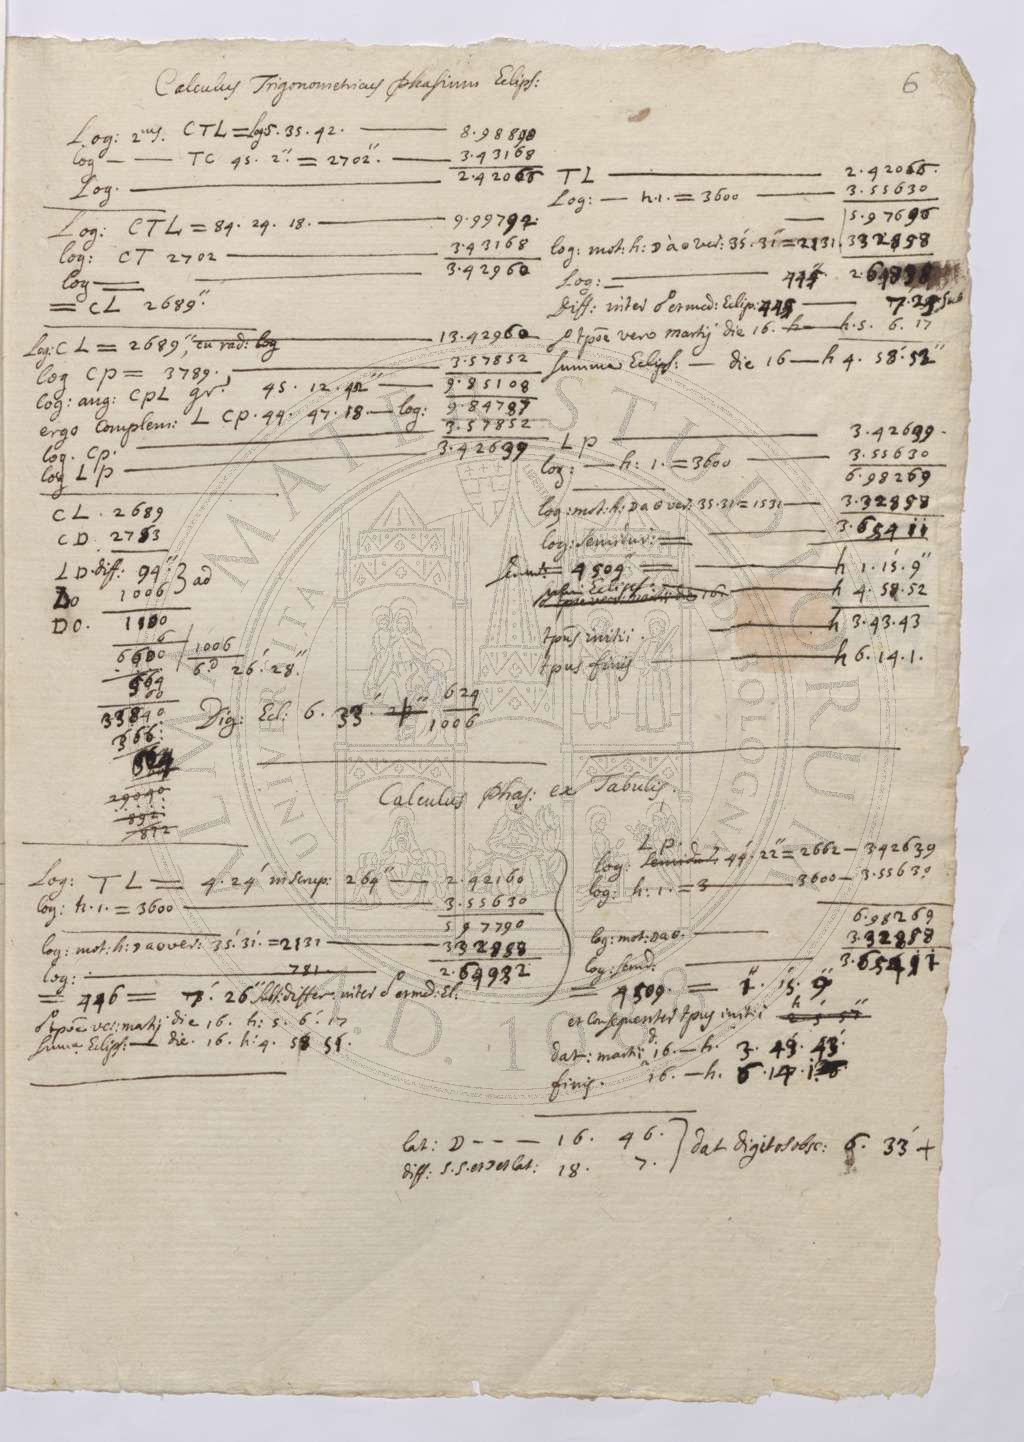 6
Calculus Trigonometricus phasium Eclips:
Log: 2us. CTL = log 5. 35. 42. 8.98890
log — TC 45. 2" = 2702". 3.43168
Log. 2.42066
Log: CTL = 84. 24. 18. 9.99792
log: CT 2702 3.43168
log 3.42960
= CL 2689"
Log: CL = 2689", 13.42960
log CP = 3789. 3.57852
log: ang: CPL gr. 45. 12. 42" 9.85108
ergo Complem: L CP. 44. 47. 18 — log: 9.84787
log. CP. 3.57852
log LP 3.42639
CL. 2689
CD. 2783
LD. diff: 94" } ad
1006
DO. 1100
6
6600 | 1006
6.D 26' 28"
564
33840
366
29040
892
872
Dig: Ecl: 6. 33' 624
1006
TL 2.42066.
Log: — h. 1. = 3600 3.55630
5.97696
log: mot: h: D a O ver: 35' 31" = 2131. 332858
Log: = 445" 2.64838
Diff: inter et med: Eclip: 445 7.25 Sub
vero martij die 16. h. 5. 6. 17
Summa Eclips: — die 16 — h 4. 58' 52"
LP 3.42699.
log: — h: 1. = 3600 3.55630
6.98269
log: mot: h: D a O ver: 35. 31 = 1531 3.32858
log: Semidur: = 3.65411
Semd: = 4509" = h 1. 15. 9"
Eclips: h 4. 58. 52
tpus initii. h 3. 43. 43
tpus finis h 6. 14. 1.
Calculus phas: ex Tabulis.
Log: TL = 4. 24' in scrup: 264" 2.42160
log: h. 1. = 3600 3.55630
597790
log: mot: h: D a O ver: 35' 31' = 2131 332858
log: 781. 2.64932
= 446 = 7' 26" differ: inter et med: Ecl.
ver: martij die 16. h: 5. 6' 17
Suma Eclips: — die. 16. h: 4. 58 51.
LP.
log: 44' 22" = 2662 — 342639
log: h: 1. = 3 3600 — 3.55630
6.98269
log: mot: D a O. 3.32858
log: Semd: 3.65411
= 4509. = 1" 15' 9"
et Consequenter tpus initii
dat: martii d. 16. — h. 3. 43. 43.
finis. 16. — h. 6. 14.
lat: D - - - 16. 46. } dat digitos obsc: 6. 33' +
diff: S. S. et lat: 18. 7.
ALMA MATER STUDIORUM
UNIVERSITA DI BOLOGNA
A.D. 1088